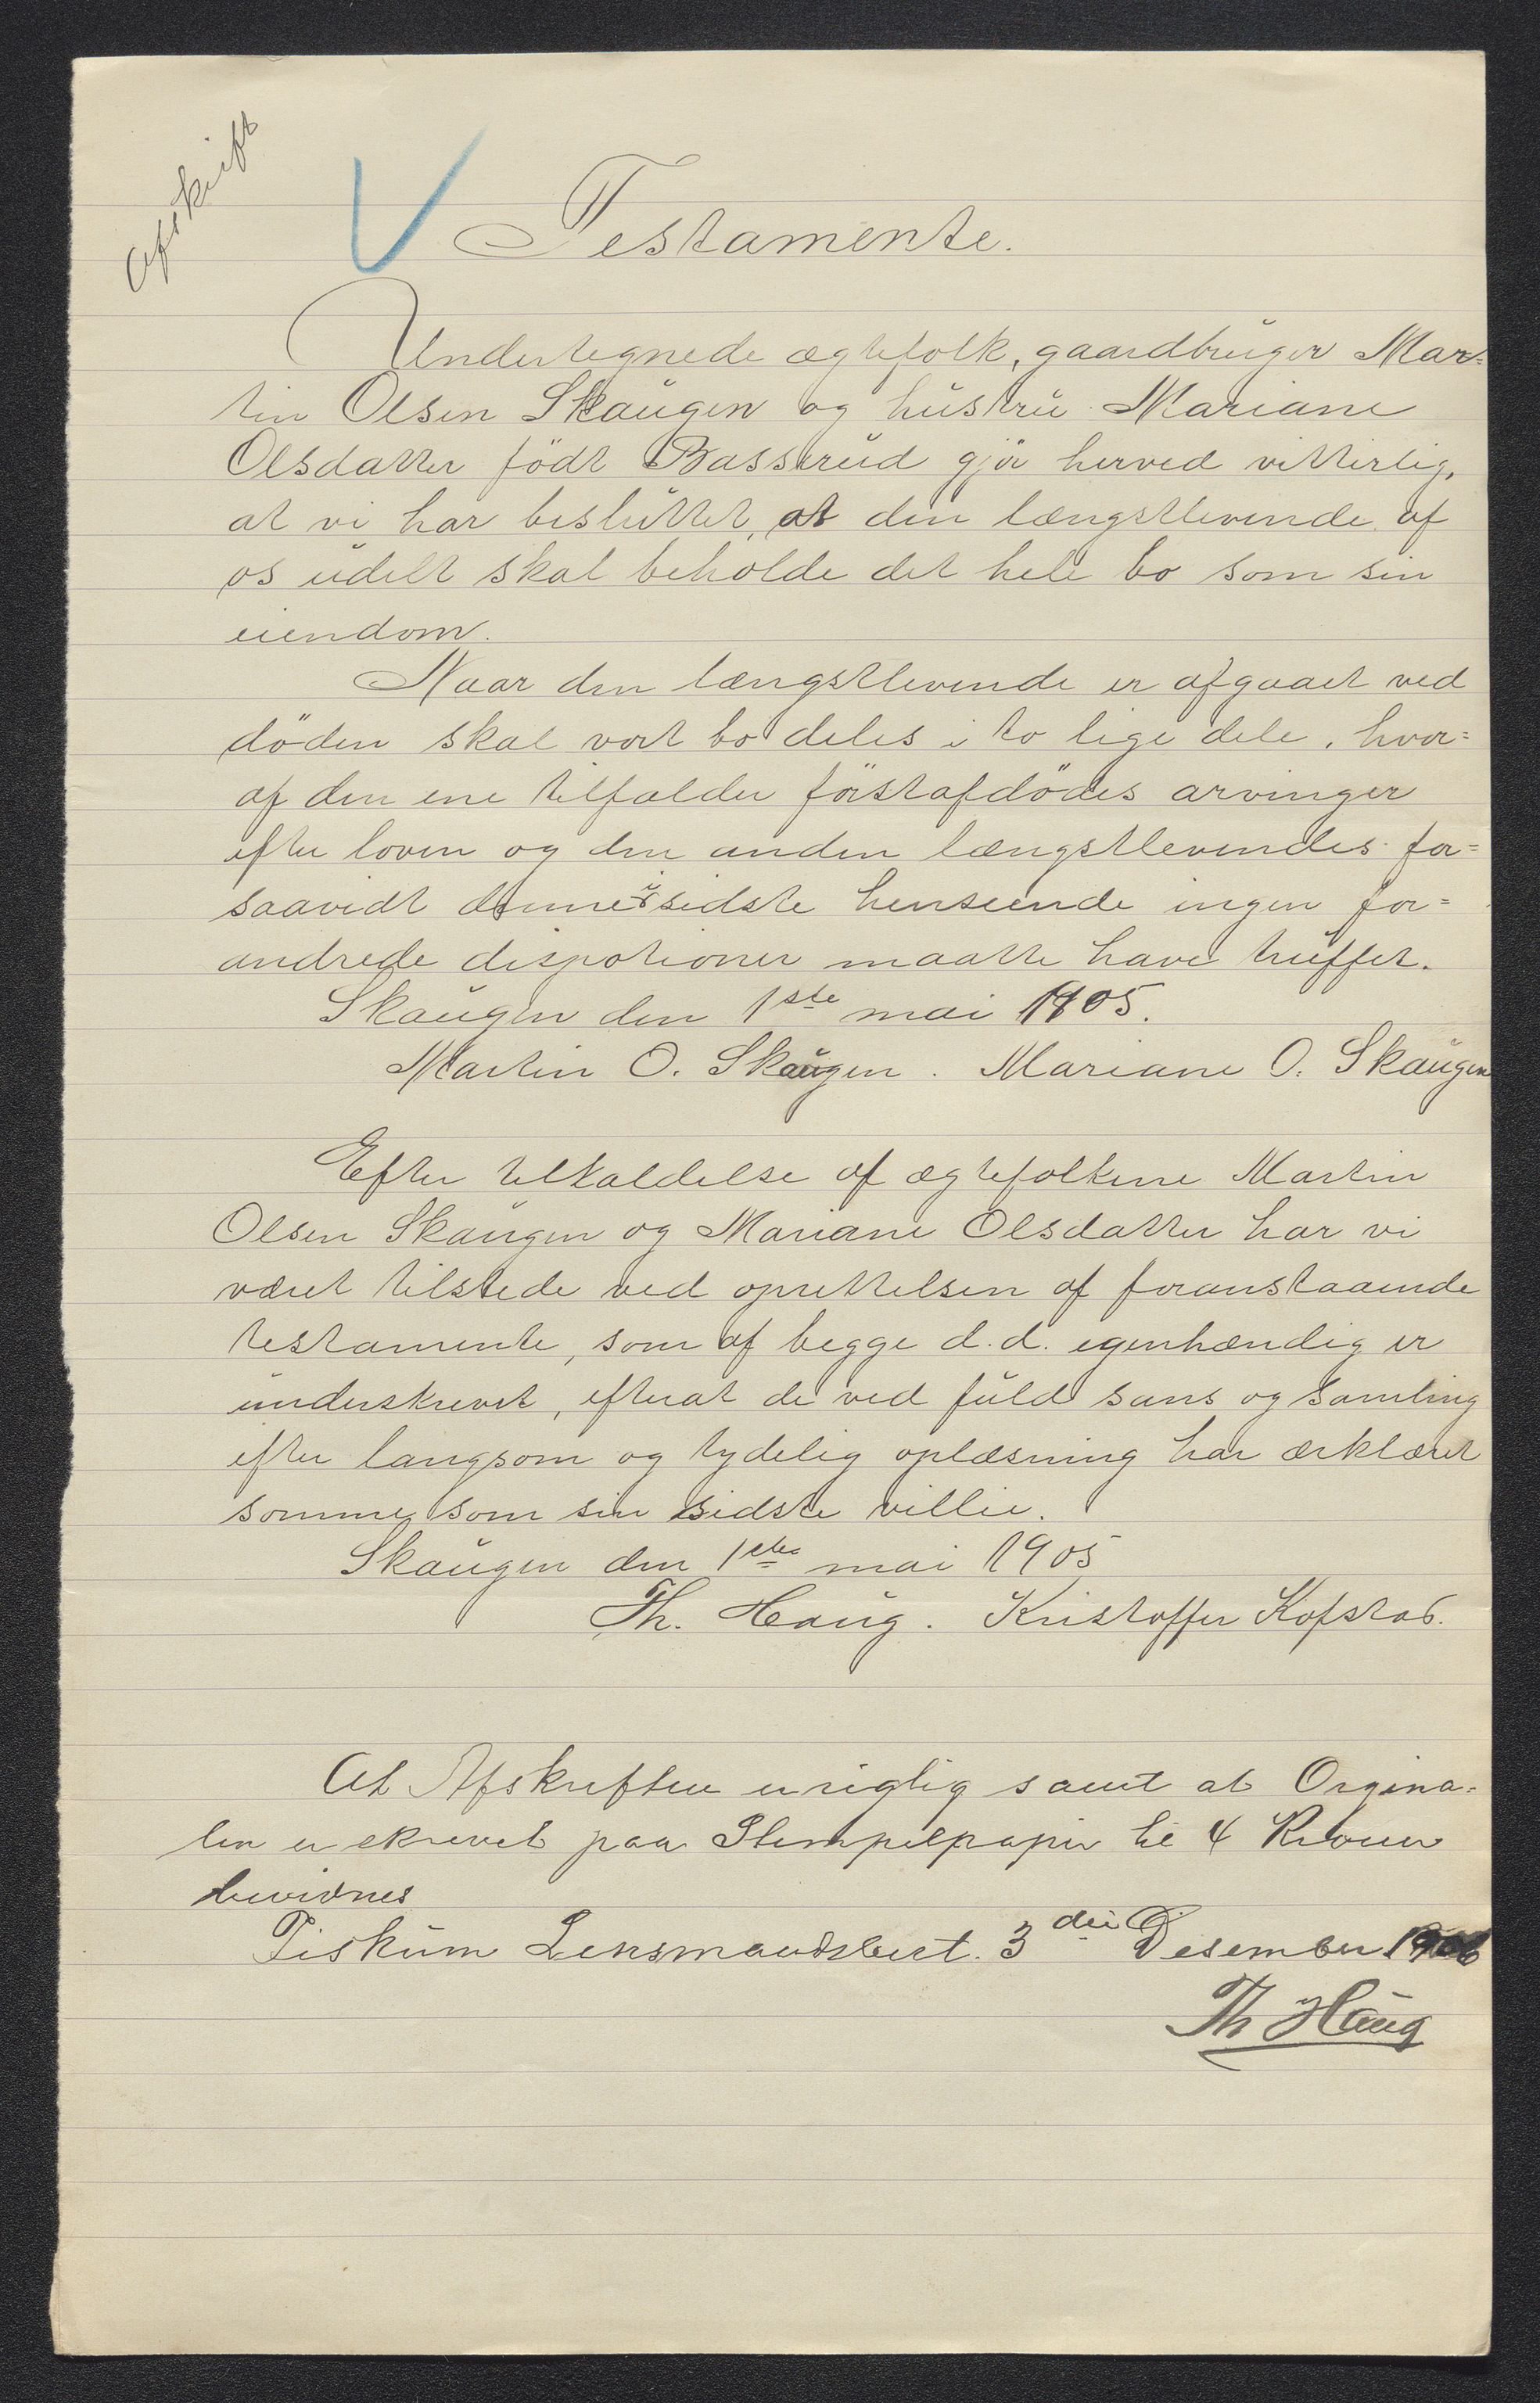 Afskrift
Testamente.
Undertegnede ægtefolk, gaardbruger Mar=
tin Olsen Skaugen og hustru Mariane
Olsdatter född Basserud gjör herved vitterlig,
at vi har besluttet, at den længstlevende af
os udelt skal beholde det hele bo som sin
eiendom.
Naar den længstlevende er afgaaet ved
döden skal vort bo deles i to lige dele, hvor=
af den ene tilfalder förstafdödes arvinger
efter loven og den anden længstlevendes for=
saavidt denne i sidste henseende ingen for=
andrede dispotioner maatte have truffet.
Skaugen den 1ste mai 1905.
Martin O. Skaugen. Mariane O. Skaugen
Efter tilkaldelse af ægtefolkene Martin
Olsen Skaugen og Mariane Olsdatter har vi
været tilstede ved oprettelsen af foranstaaende
testamente, som af begge d.d. egenhændig er
underskrevet, efterat de ved fuld sans og samling
efter langsom og tydelig oplæsning har erklæret
somme som sin sidste villie.
Skaugen den 1ste mai 1905
Th. Haug. Kristoffer Kopstad.
At Afskriften er rigtig samt at Orgina=
len er skrevet paa Stempelpapir til 4 Kroner
bevidnes
Fiskum Lensmandsbest. 3die Desember 1906
Th Haug